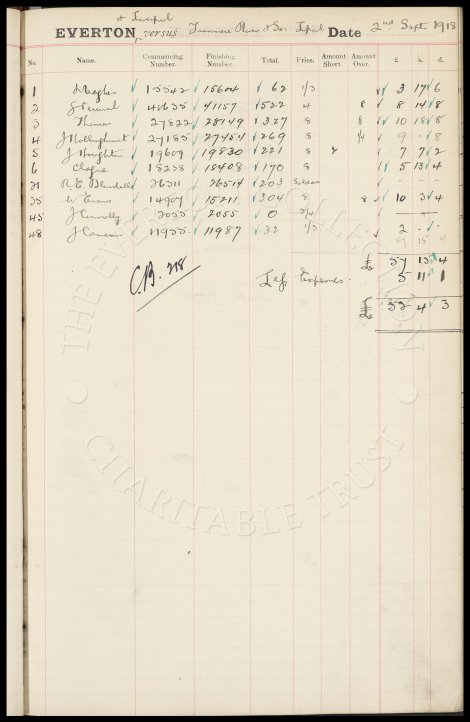 & Liverpool
EVERTON, versus Tranmere Rov & Sth Lpool Date 2nd Sept 1918
No. Name. Commencing Number. Finishing Number. Total. Price. Amount Short. Amount Over. £ s. d.
1 Meagher 15542 15604 62 1/3 3 17 6
2 J Percival 40635 41157 522 4 8 8 14 8
3 Thomas 27822 28149 327 8 8 10 18 8
4 J Hollinghurst 27185 27454 269 8 9 8
5 J Houghton 19609 19830 221 8 7 7 2
6 Clague 18238 18408 170 8 5 13 4
31 R. E. Blundell 26311 26514 203 Soldiers - - -
35 W Evans 14907 15211 304 8 8 10 3 4
45 J Connolly 2055 2055 0 3/4
48 J Cameron 11955 11987 32 1/3 2 - -
57 15 4
£ 57 15 4
Less Expenses 5 11 1
£ 52 4 3
C.B. 218
THE EVERTON COLLECTION
CHARITABLE TRUST